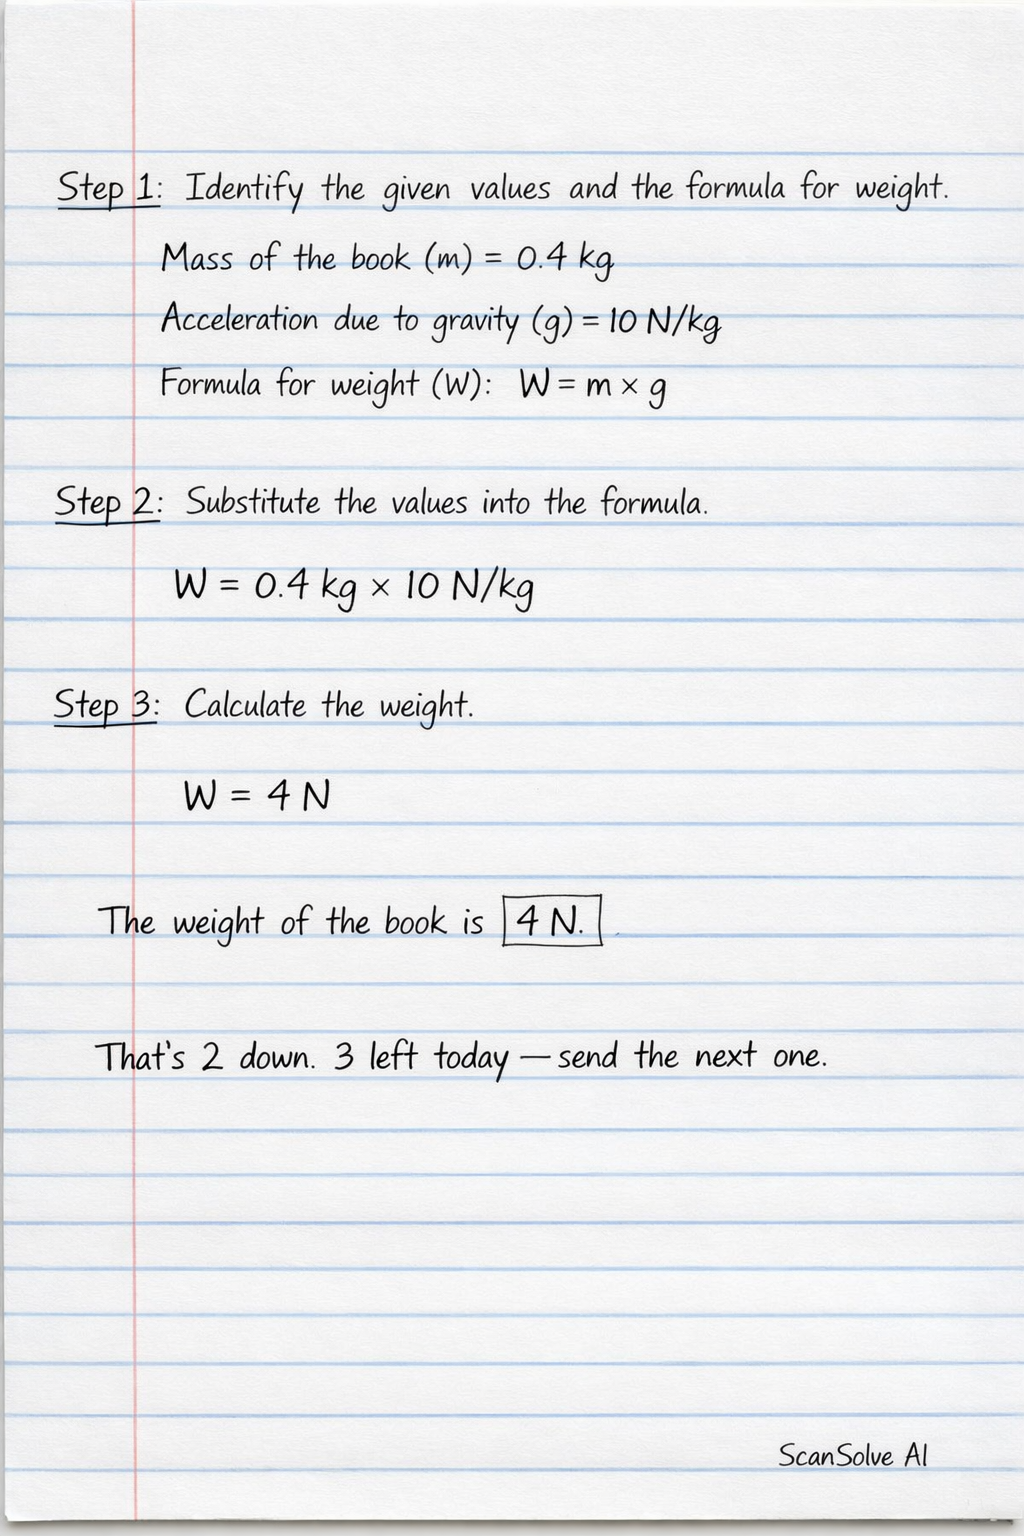 Step 1: Identify the given values and the formula for weight.
Mass of the book (m) = 0.4 kg
Acceleration due to gravity (g) = 10 N/kg
Formula for weight (W): W = m × g
Step 2: Substitute the values into the formula.
W = 0.4 kg × 10 N/kg
Step 3: Calculate the weight.
W = 4 N
The weight of the book is 4 N.
That's 2 down. 3 left today — send the next one.
ScanSolve AI